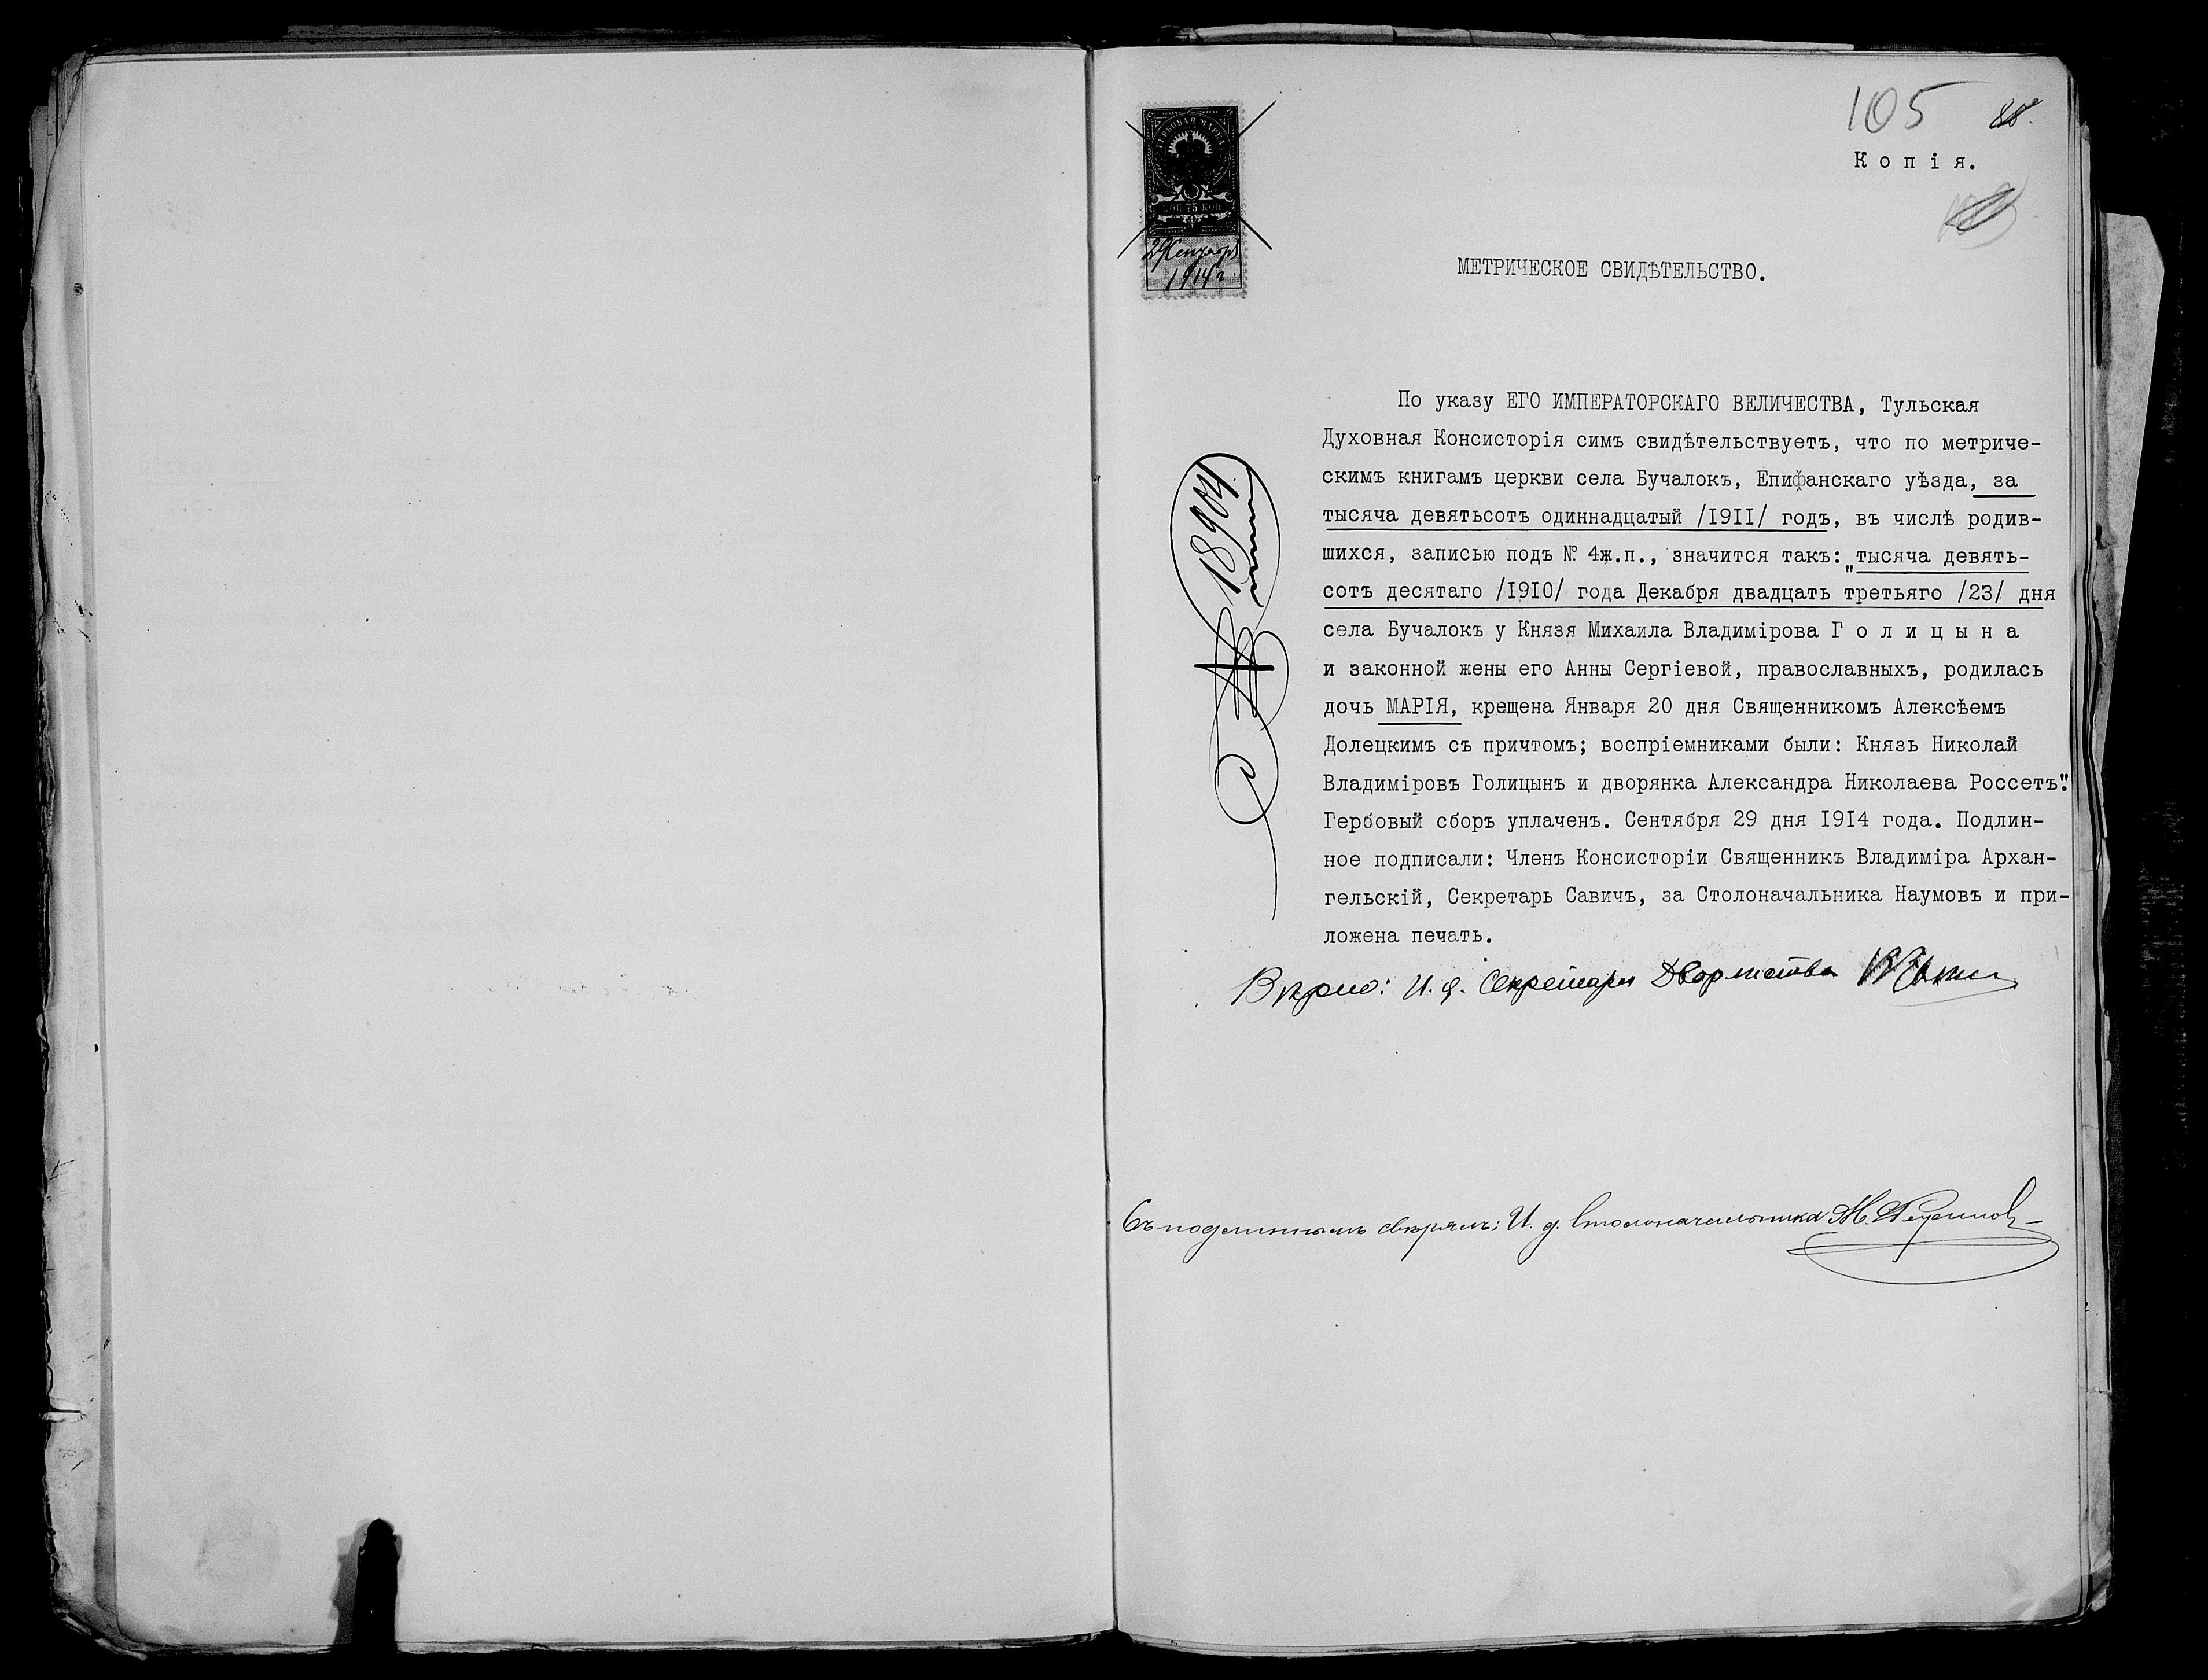 105 88.
Копія.
ГЕРБОВАЯ МАРКА
КОП 75 КОП
29 Сентябр
1914 г.
МЕТРИЧЕСКОЕ СВИДѢТЕЛЬСТВО.
По указу ЕГО ИМПЕРАТОРСКАГО ВЕЛИЧЕСТВА, Тульская
Духовная Консисторія симъ свидѣтельствуетъ, что по метриче-
скимъ книгамъ церкви села Бучалокъ, Епифанскаго уѣзда, за
тысяча девятьсотъ одиннадцатый /I9II/ годъ, въ числѣ родив-
шихся, записью подъ № 4ж.п., значится такъ: "тысяча девять-
сотъ десятаго /I9I0/ года Декабря двадцать третьяго /23/ дня
села Бучалокъ у Князя Михаила Владимірова Голицына
и законной жены его Анны Сергіевой, православныхъ, родилась
дочь МАРІЯ, крещена Января 20 дня Священникомъ Алексѣемъ
Долецкимъ съ причтомъ; воспріемниками были: Князь Николай
Владиміровъ Голицынъ и дворянка Александра Николаева Россетъ".
Гербовый сборъ уплаченъ. Сентября 29 дня I9I4 года. Подлин-
ное подписали: Членъ Консисторіи Священникъ Владиміра Архан-
гельскій, Секретарь Савичъ, за Столоначальника Наумовъ и при-
ложена печать.
18904
Вѣрно: И. д. Секретаря Дворянства
Съ подлиннымъ свѣрялъ: И. д. Столоначальника